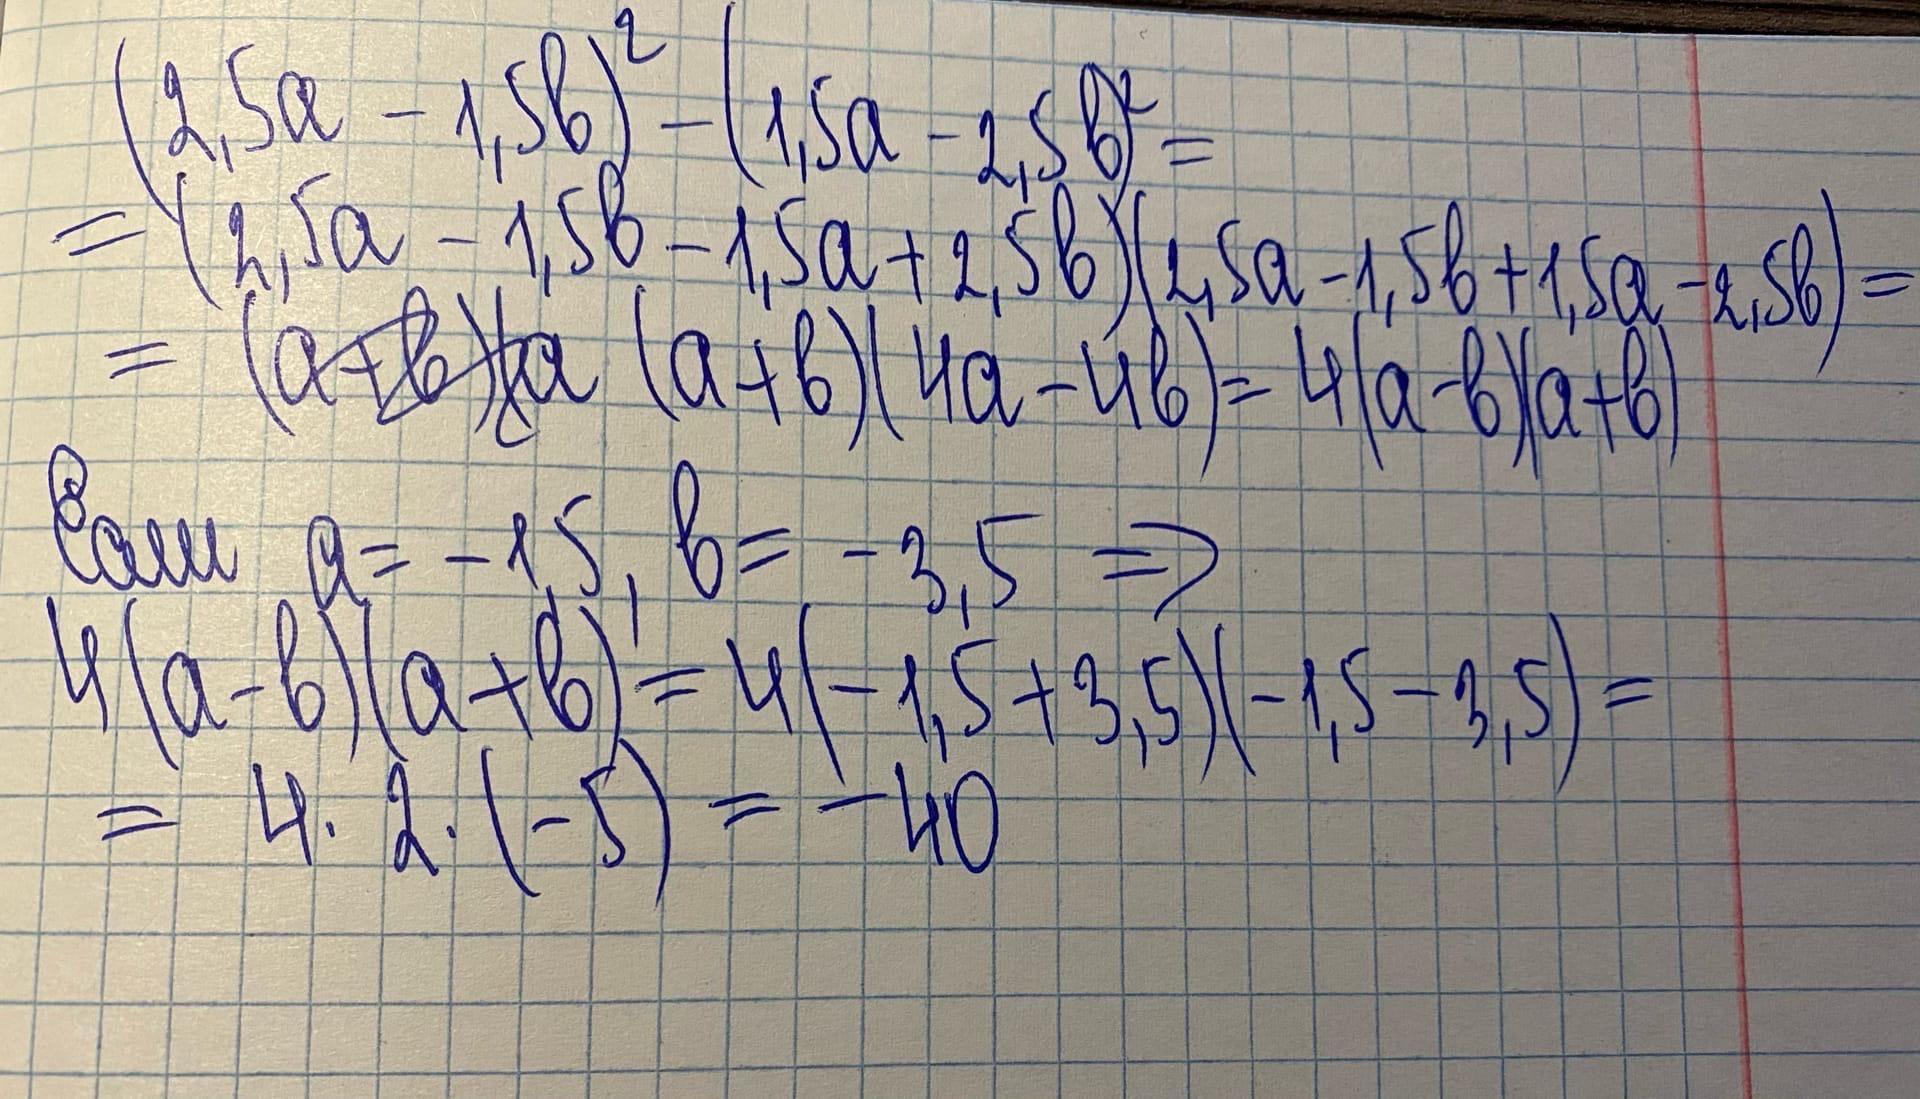 (2,5a - 1,5b)² - (1,5a - 2,5b)² =
= (2,5a - 1,5b - 1,5a + 2,5b)(2,5a - 1,5b + 1,5a - 2,5b) =
= (a+b)(a (a+b)(4a - 4b) = 4(a-b)(a+b)
Если a = -1,5, b = -3,5 ⇒
4(a-b)(a+b) = 4(-1,5+3,5)(-1,5-3,5) =
= 4 · 2 · (-5) = -40